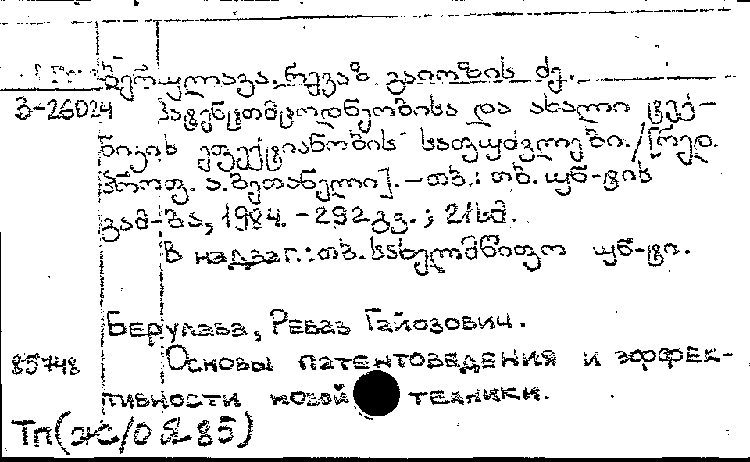 ბერულავა, რევაზ გაიოზის ძე.
3-26024 პატენტთმცოდნეობისა და ახალი ტექ-
ნიკის ეფექტიანობის საფუძვლები. /[რედ.
პროფ. ა. ბეთანელი]. - თბ.: თბ. უნ-ტის
გამ-ბა, 1984. - 292 გვ.; 21 სმ.
В надзаг.: თბ. სახელმწიფო უნ-ტი.
Берулава, Реваз Гайозович.
85748 Основы патентоведения и эффек-
тивности новой техники.
Тп(ж/о Я 85)